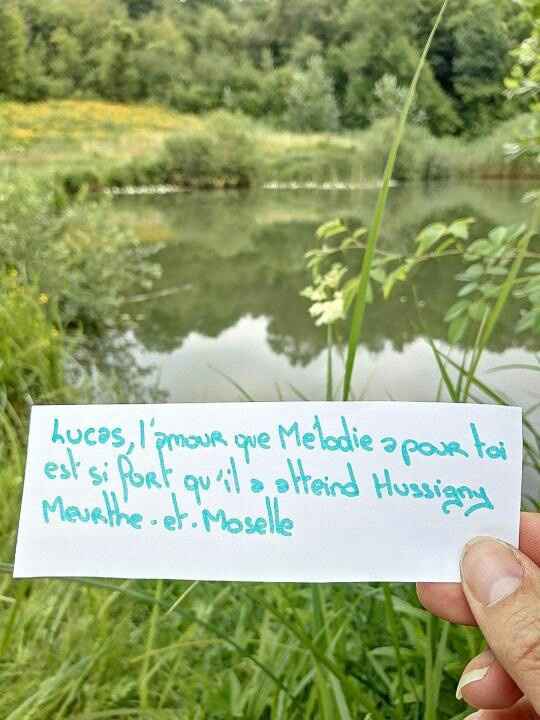 Lucas, l'amour que Mélodie a pour toi
est si fort qu'il a atteind Hussigny
Meurthe.et.Moselle